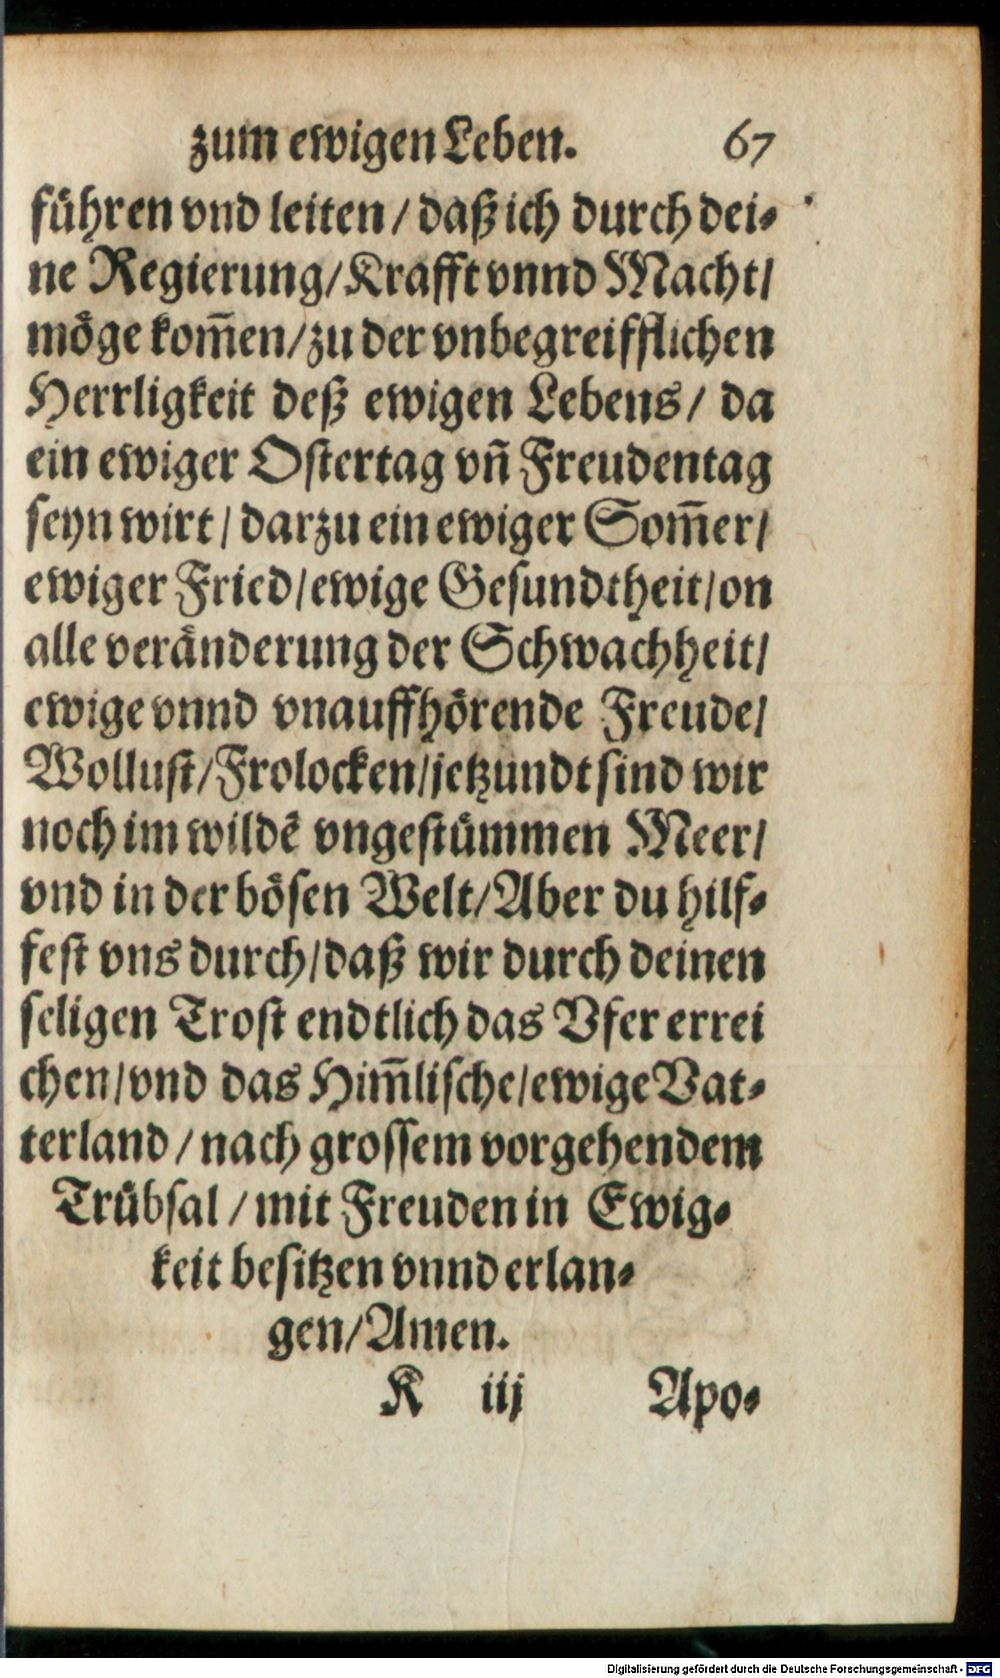 zum ewigen Leben. 67
fuͤhren vnd leiten / daß ich durch dei⸗
ne Regierung/Krafft vnnd Macht/
moͤge kom̄en/zu der vnbegreifflichen
Herrligkeit deß ewigen Lebens/ da
ein ewiger Ostertag vn̄ Freudentag
seyn wirt/ darzu ein ewiger Som̄er/
ewiger Fried/ewige Gesundtheit/on
alle veraͤnderung der Schwachheit/
ewige vnnd vnauffhoͤrende Freude/
Wollust/Frolocken/jetzundt sind wir
noch im wildē vngestuͤmmen Meer/
vnd in der boͤsen Welt/Aber du hilf⸗
fest vns durch/daß wir durch deinen
seligen Trost endtlich das Vfer errei
chen/vnd das Him̄lische/ewige Vat⸗
terland/nach grossem vorgehendem
Truͤbsal/mit Freuden in Ewig⸗
keit besitzen vnnd erlan⸗
gen/Amen.
K iij Apo⸗
Digitalisierung gefördert durch die Deutsche Forschungsgemeinschaft - DFG